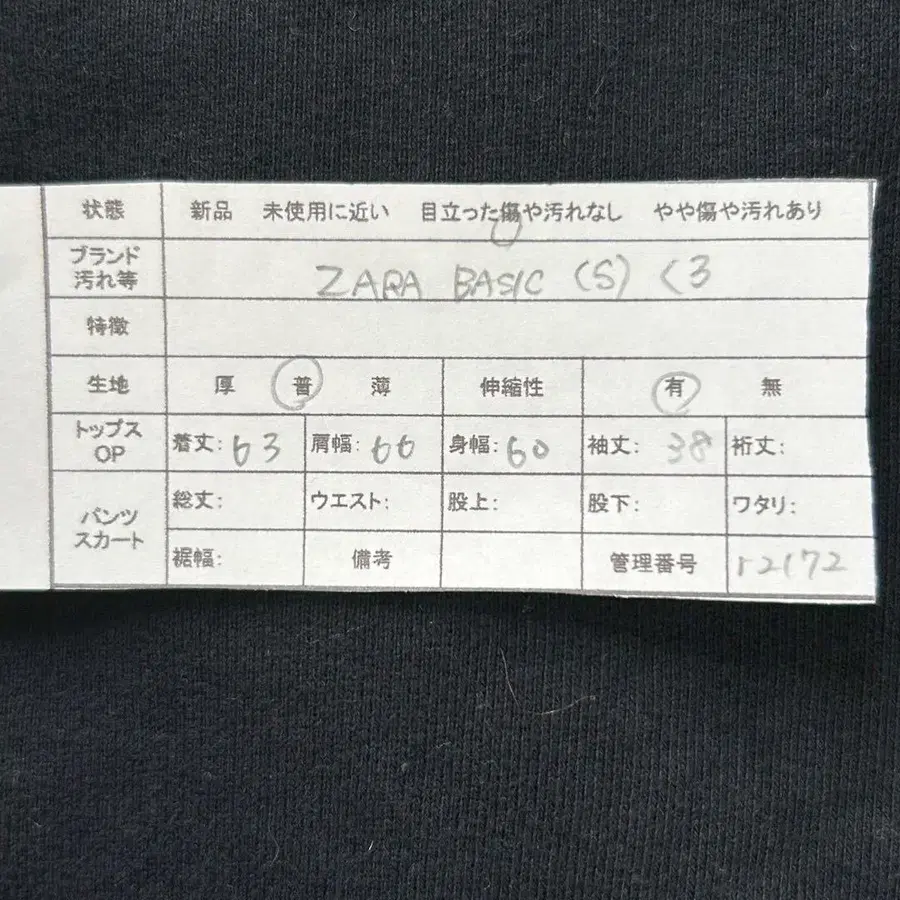 状態 新品 未使用に近い 目立った傷や汚れなし やや傷や汚れあり
ブランド
汚れ等
ZARA BASIC (S) <3
特徴
生地 厚 普 薄 伸縮性 有 無
トップス
OP
着丈: 63 肩幅: 66 身幅: 60 袖丈: 38 裄丈:
パンツ
スカート
総丈: ウエスト: 股上: 股下: ワタリ:
裾幅: 備考 管理番号 12172